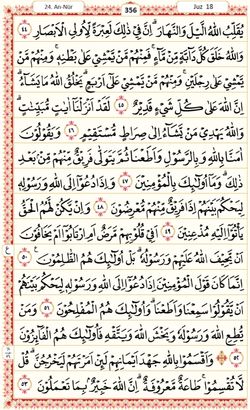 24. An-Nūr
356
Juz 18
يُقَلِّبُ اللّٰهُ الَّيْلَ وَالنَّهَارَ ؕ اِنَّ فِيْ ذٰلِكَ لَعِبْرَةً لِّاُولِي الْاَبْصَارِ ﴿۴۴﴾
وَاللّٰهُ خَلَقَ كُلَّ دَآبَّةٍ مِّنْ مَّآءٍ ۚ فَمِنْهُمْ مَّنْ يَّمْشِيْ عَلٰي بَطْنِهٖ ۚ وَمِنْهُمْ مَّنْ
يَّمْشِيْ عَلٰي رِجْلَيْنِ ۚ وَمِنْهُمْ مَّنْ يَّمْشِيْ عَلٰۤي اَرْبَعٍ ؕ يَخْلُقُ اللّٰهُ مَا يَشَآءُ ؕ
اِنَّ اللّٰهَ عَلٰي كُلِّ شَيْءٍ قَدِيْرٌ ﴿۴۵﴾ لَقَدْ اَنْزَلْنَاۤ اٰيٰتٍ مُّبَيِّنٰتٍ ؕ
وَاللّٰهُ يَهْدِيْ مَنْ يَّشَآءُ اِلٰي صِرَاطٍ مُّسْتَقِيْمٍ ﴿۴۶﴾ وَيَقُوْلُوْنَ
اٰمَنَّا بِاللّٰهِ وَبِالرَّسُوْلِ وَاَطَعْنَا ثُمَّ يَتَوَلّٰي فَرِيْقٌ مِّنْهُمْ مِّنْۢ بَعْدِ
ذٰلِكَ ؕ وَمَاۤ اُولٰٓئِكَ بِالْمُؤْمِنِيْنَ ﴿۴۷﴾ وَاِذَا دُعُوْۤا اِلَي اللّٰهِ وَرَسُوْلِهٖ
لِيَحْكُمَ بَيْنَهُمْ اِذَا فَرِيْقٌ مِّنْهُمْ مُّعْرِضُوْنَ ﴿۴۸﴾ وَاِنْ يَّكُنْ لَّهُمُ الْحَقُّ
يَاْتُوْۤا اِلَيْهِ مُذْعِنِيْنَ ﴿۴۹﴾ اَفِيْ قُلُوْبِهِمْ مَّرَضٌ اَمِ ارْتَابُوْۤا اَمْ يَخَافُوْنَ
اَنْ يَّحِيْفَ اللّٰهُ عَلَيْهِمْ وَرَسُوْلُهٗ ؕ بَلْ اُولٰٓئِكَ هُمُ الظّٰلِمُوْنَ ﴿۵۰﴾
اِنَّمَا كَانَ قَوْلَ الْمُؤْمِنِيْنَ اِذَا دُعُوْۤا اِلَي اللّٰهِ وَرَسُوْلِهٖ لِيَحْكُمَ بَيْنَهُمْ
اَنْ يَّقُوْلُوْا سَمِعْنَا وَاَطَعْنَا ؕ وَاُولٰٓئِكَ هُمُ الْمُفْلِحُوْنَ ﴿۵۱﴾ وَمَنْ
يُّطِعِ اللّٰهَ وَرَسُوْلَهٗ وَيَخْشَ اللّٰهَ وَيَتَّقْهِ فَاُولٰٓئِكَ هُمُ الْفَآئِزُوْنَ
﴿۵۲﴾ وَاَقْسَمُوْا بِاللّٰهِ جَهْدَ اَيْمَانِهِمْ لَئِنْ اَمَرْتَهُمْ لَيَخْرُجُنَّ ؕ قُلْ
لَّا تُقْسِمُوْا ۚ طَاعَةٌ مَّعْرُوْفَةٌ ؕ اِنَّ اللّٰهَ خَبِيْرٌۢ بِمَا تَعْمَلُوْنَ ﴿۵۳﴾